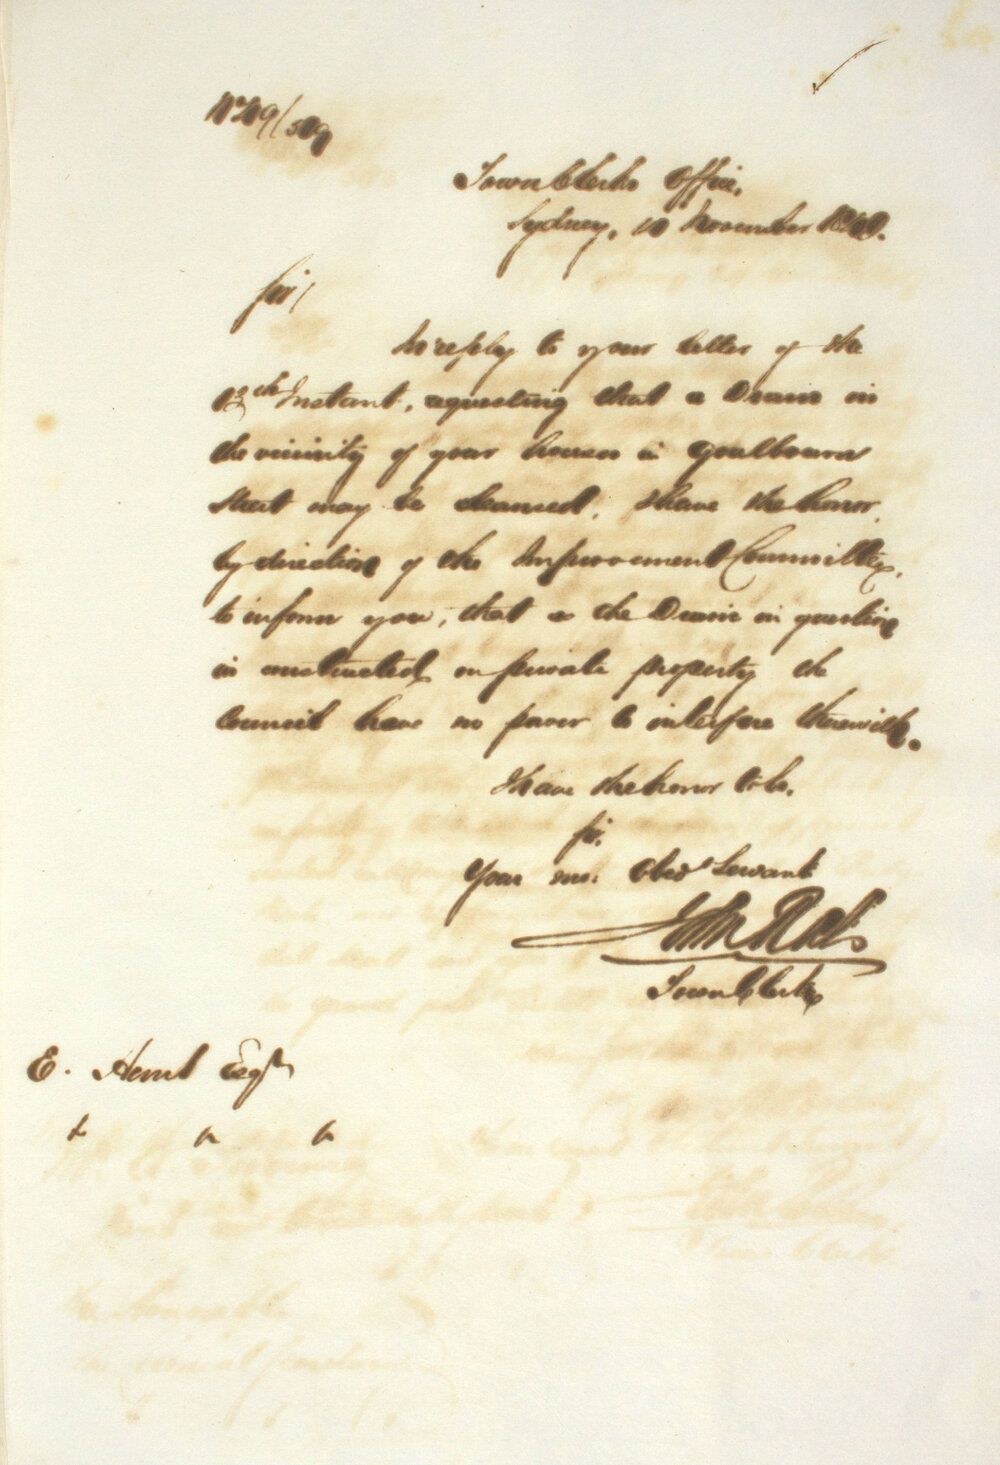 No 49/509
Town Clerks Office,
Sydney, November 1849.
Sir/
In reply to your letter of the
13th Instant, requesting that a Drain in
the vicinity of your houses in Goulbourn
Street may be cleansed, I have the honor,
by direction of the Improvement Committee,
to inform you, that as the Drain in question
is constructed on private property the
Council have no power to interfere therewith.
I have the honor to be,
Sir,
Your mo: Obed Servant
John Rae
Town Clerk
E. Esqr